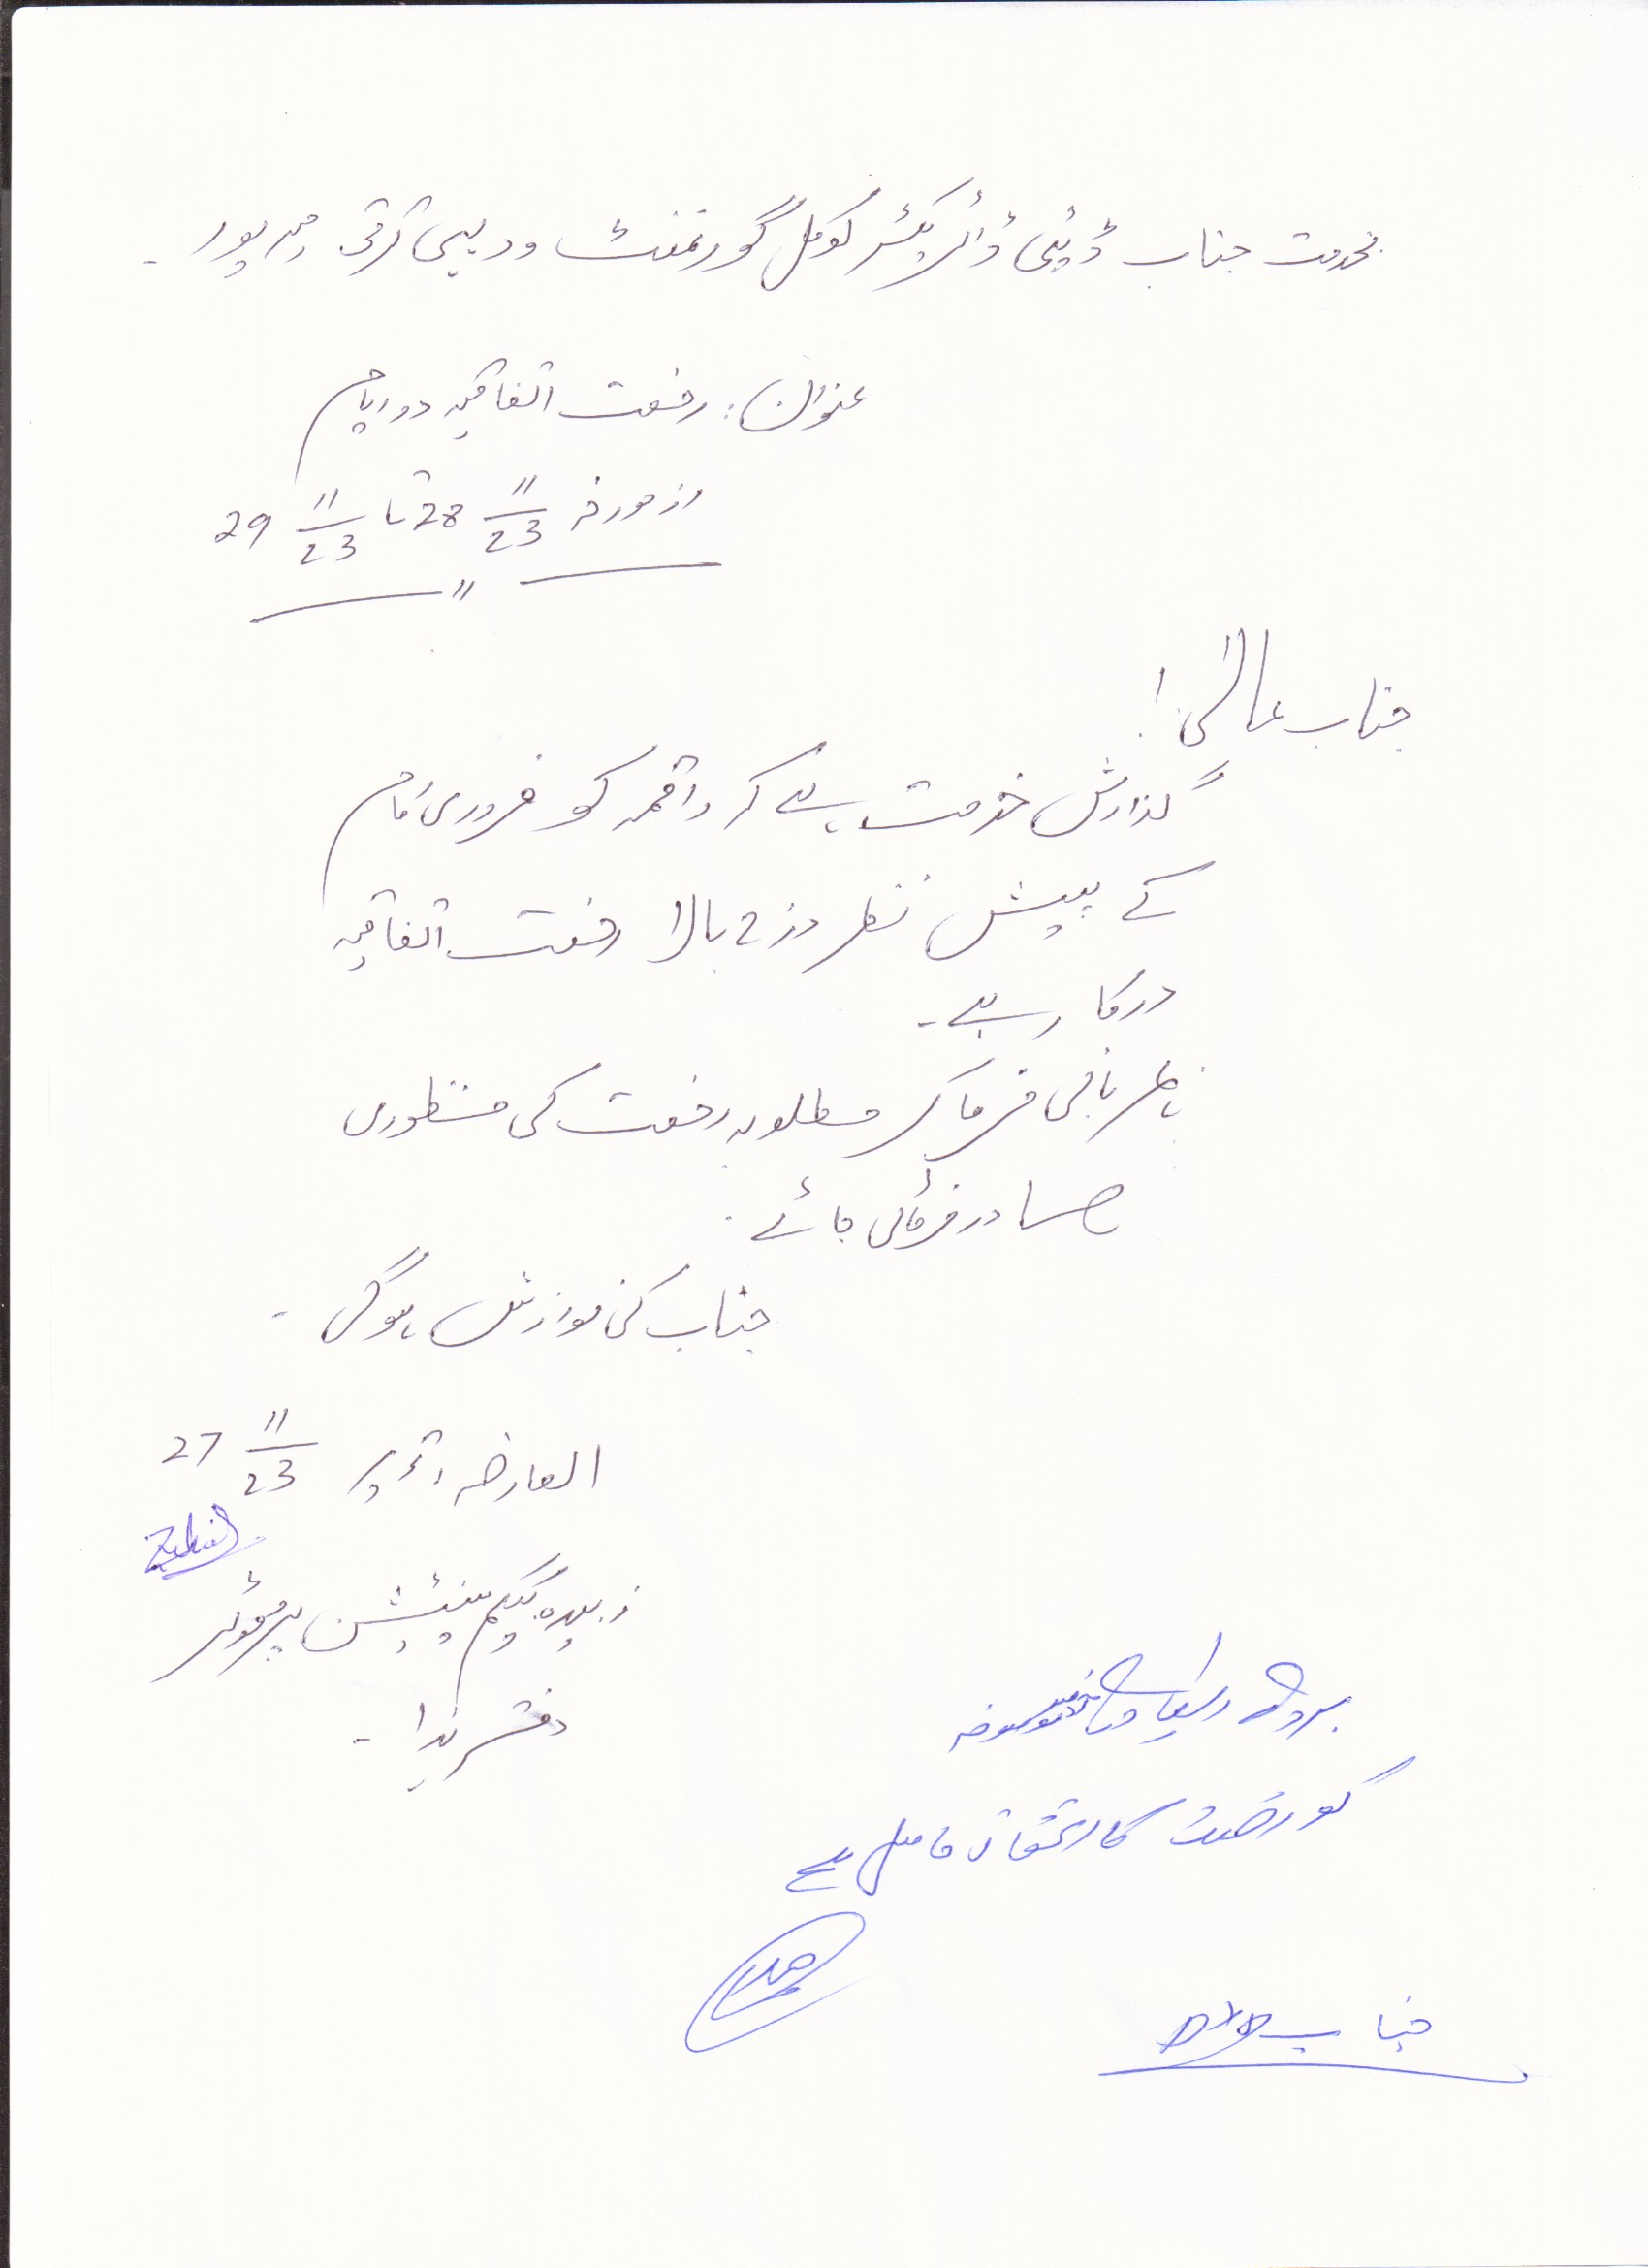 بخدمت جناب ڈپٹی ڈائریکٹر لوکل گورنمنٹ و دیہی ترقی میرپور۔
عنوان: رخصت اتفاقیہ دو ایام
از مورخہ 28 11/23 تا 29 11/23
جناب عالی!
گذارش خدمت ہے کہ راقمہ کو ضروری کام
کے پیش نظر مندرجہ بالا رخصت اتفاقیہ
درکار ہے۔
مہربانی فرما کر مطلوبہ رخصت کی منظوری
صادر فرمائی جائے۔
جناب کی نوازش ہوگی۔
العارضہ 27 11/23
زبیدہ بیگم سینیٹیشن پروموٹر
دفتر ہذا۔
بروئے ریکارڈ موصوفہ
کو رخصت کا استحقاق حاصل ہے
جناب